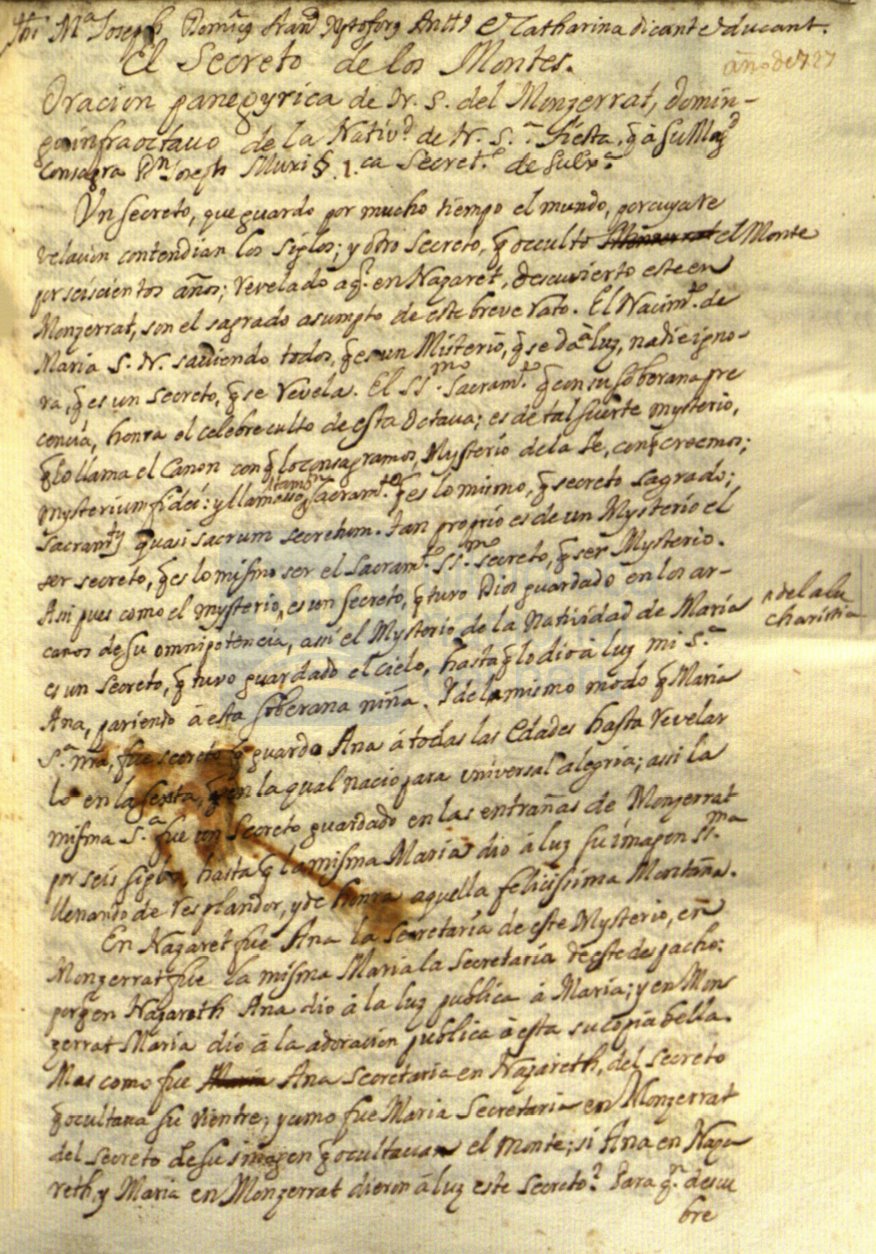 Jhs Mª Joseph, Domᵍ Franᵈ Xptoforg Anttᵍ et Catharina dicant educant.
El Secreto de los Montes.
año de 727
Oracion panegyrica de N. S. del Monzerrat, domin-
go infraoctavo de la Nativᵈ de N. S.ª fiesta, q̃ â su Magᵈ
consagra Dⁿ Joseph Muxi
Un secreto, que guardo por mucho tiempo el mundo, por cuya re
velacion contendian los siglos; y otro secreto, q̃ occultò el Monte
por seiscientos años; revelado aq.ˡ en Nazaret, descuvierto este en
Monzerrat, son el sagrado asumpto de este breve rato. El Nacim.ᵗᵒ de
Maria S. N. saviendo todos, q̃ es un Misterio, q̃ se dà â luz, nadie igno-
ra, q̃ es un secreto, q̃ se revela. El SS.ᵐᵒ Sacram.ᵗᵒ q̃ con su soberana pre
cencia, honra el celebre culto de esta Octava; es de tal suerte mysterio,
q̃ lo llama el Canon con q̃ lo consagramos, Mysterio de la fê, con q̃ creemos;
mysterium fidei: y llamesse tambⁿ Sacram.ᵗᵒ q̃ es lo mismo, q̃ secreto sagrado;
Sacramtỹ quasi sacrum secretum. Tan proprio es de un Mysterio el
ser secreto, q̃ es lo mismo ser el Sacram.ᵗᵒ SS.ᵐᵒ secreto, q̃ ser Mysterio.
Asi pues como el mysterio, es un secreto, q̃ tuvo Dios guardado en los ar-
^ de la Eu
charistia
canos de su omnipotencia, assi el Mysterio de la Natividad de Maria
es un secreto, q̃ tuvo guardado el cielo, hasta q̃ lo diò â luz mi S.ª
Ana, pariendo â esta soberana niña. Y de la mismo modo q̃ Maria
S.ª nrâ, fue secreto q̃ guardo Ana â todas las Edades hasta revelar
lo en la sexta, q̃ en la qual nacio para universal alegria; assi la
misma S.ª fue un Secreto guardado en las entrañas de Monzerrat
por seis siglos, hasta q̃ la misma Maria dio â luz su imagen SS.ᵐᵃ
llenando de resplandor, y de honra aquella felicissima Montaña.
En Nazaret fue Ana la Secretaria de este Mysterio, en
Monzerrat fue la misma Maria la Secretaria de este despacho:
porq̃ en Nazareth Ana dio â la luz publica â Maria; y en Mon
zerrat Maria diò â la adoracion publica â esta su copia bella.
Mas como fue Maria Ana Secretaria en Nazareth, del secreto
q̃ ocultava su vientre; y como fue Maria Secretaria en Monzerrat
del secreto de su imagen q̃ ocultavan el monte; si Ana en Naza
reth, y Maria en Monzerrat dieron â luz este secreto? Para q.ᵉ descu
bre